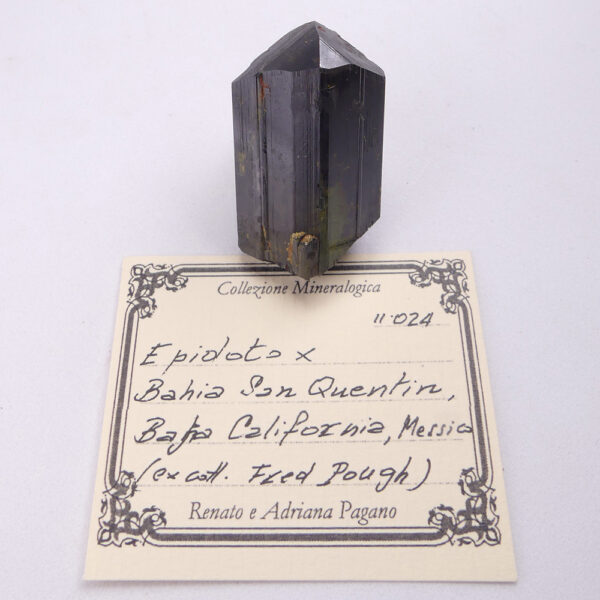 Collezione Mineralogica
11.024
Epidoto x
Bahia San Quentin,
Baja California, Messico
(ex coll. Fred Pough)
Renato e Adriana Pagano